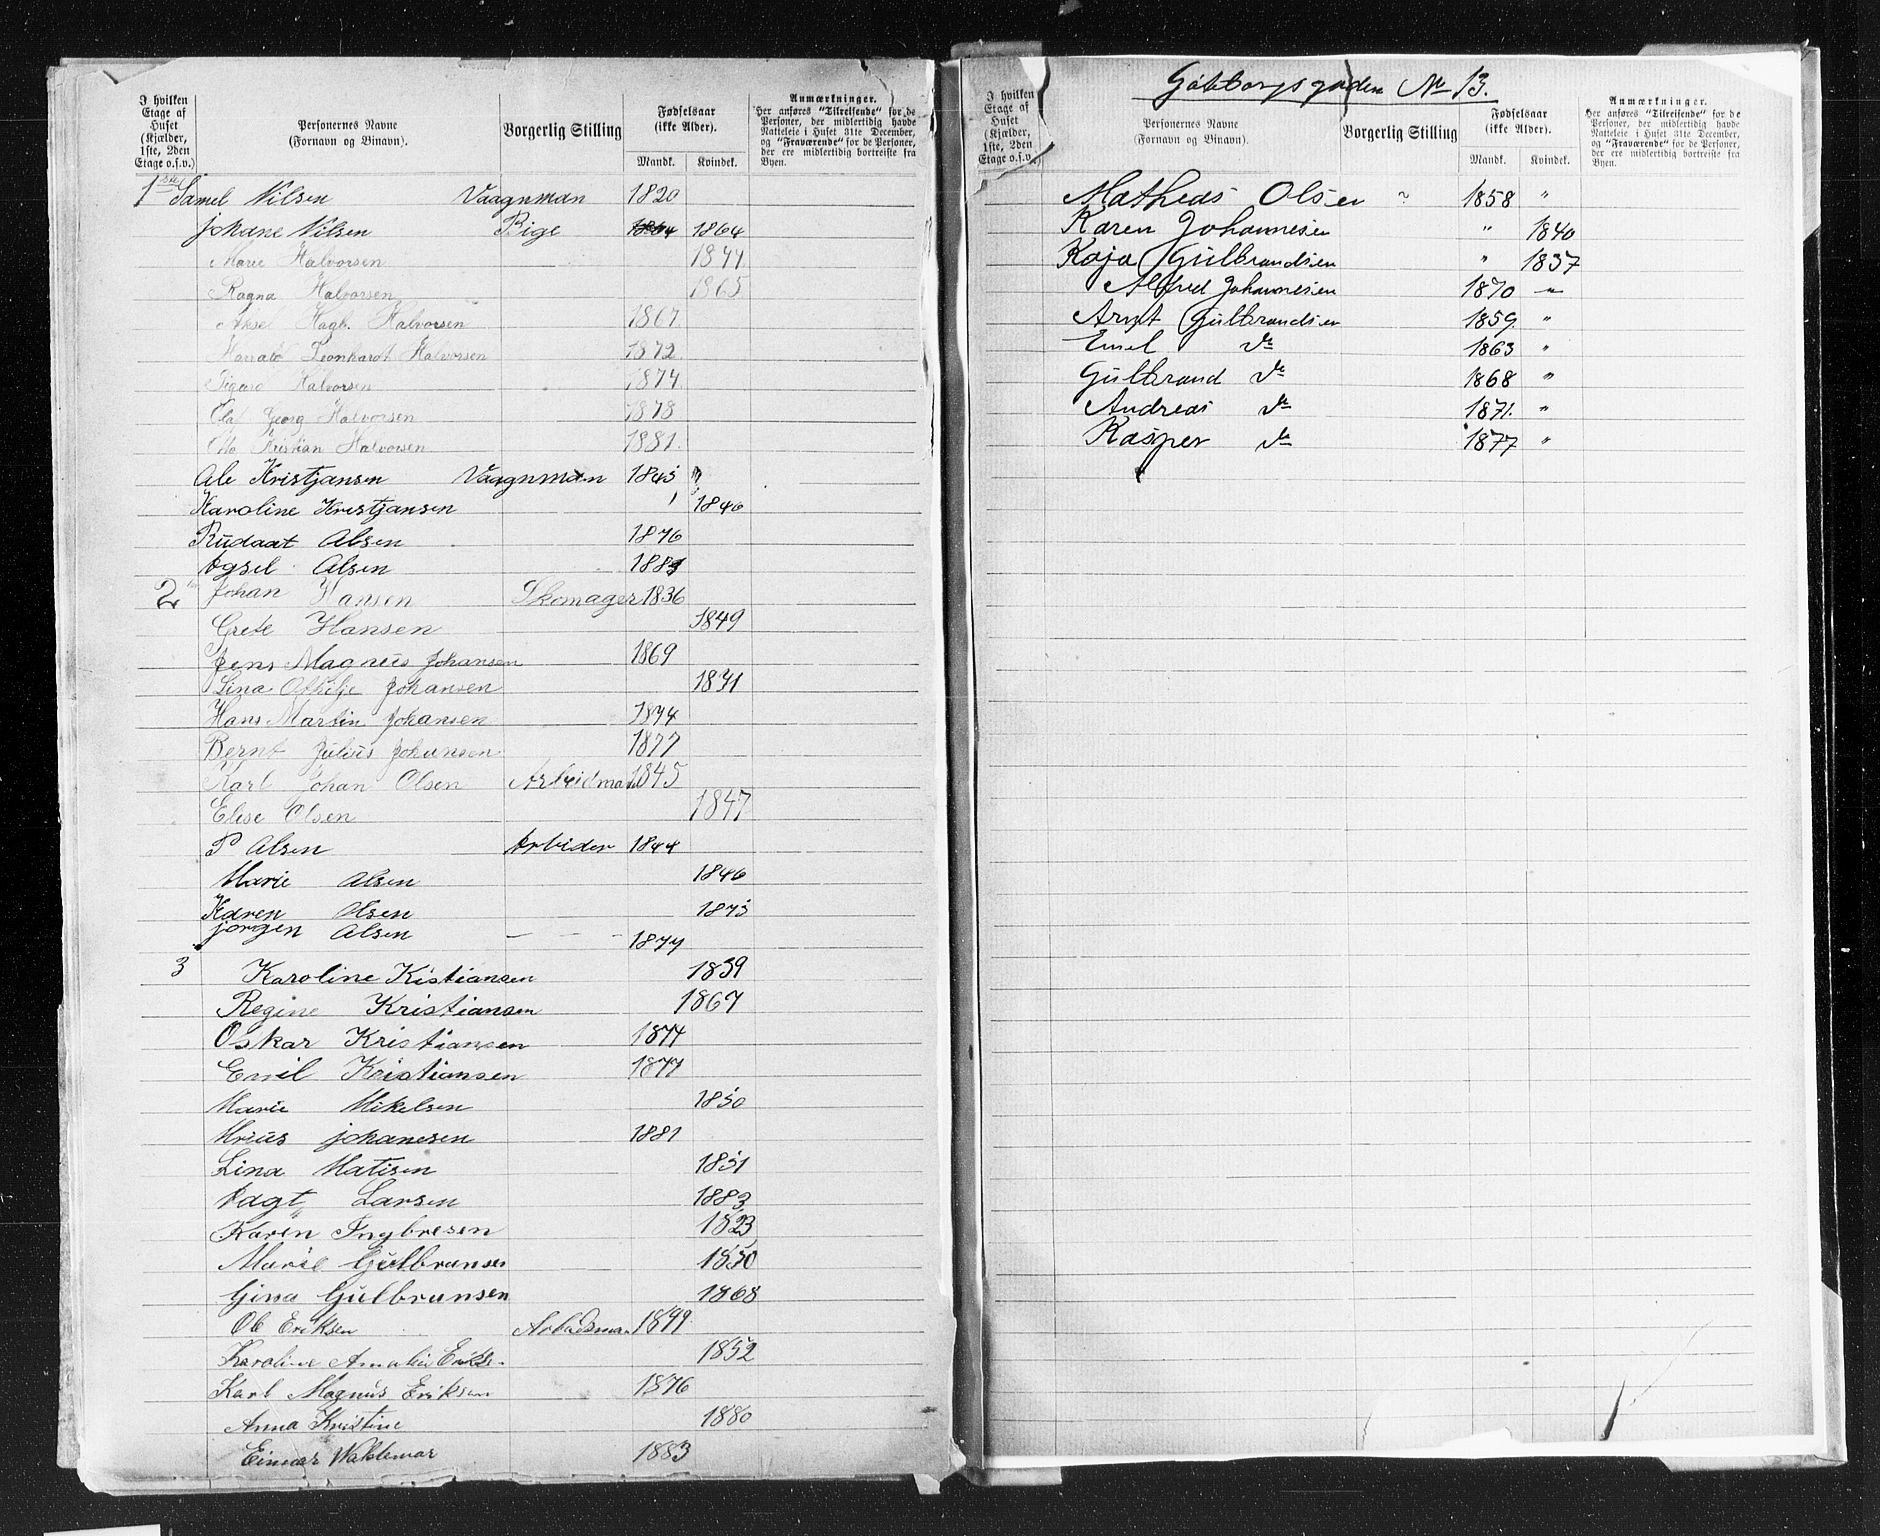 I hvilken Etage af Huset (Kjælder, 1ste, 2den Etage o.s.v.)
Personernes Navne (Fornavn og Binavn).
Borgerlig Stilling
Fødselsaar (ikke Alder).
Mandk. Kvindek.
Anmærkninger.
Her anføres "Tilreisende" for de Personer, der midlertidig havde Natteleie i Huset 31te December, og "Fraværende" for de Personer, der ere midlertidig bortreiste fra Byen.
1ste Samel Nilsen Vaagnman 1820
johane Nilsen Pige 1864 1864
Marie Halvorsen 1844
Ragna Halvorsen 1865
Aksel Hagb. Halvorsen 1867
Harrald Leonhardt Halvorsen 1872
Sigurd Halvorsen 1874
Olaf Georg Halvorsen 1878
Otto Kristian Halvorsen 1881
Ole Kristjansen Vaagnman 1845
Karoline Kristjansen 1846
Rudaat Olsen 1876
Agsel Olsen 1883
2 Johan Hansen Skomager 1836
Grete Hansen 1849
Jens Magnus Johansen 1869
Lina Othilje Johansen 1871
Hans Martin Johansen 1874
Bernt Julius Johansen 1877
Karl Johan Olsen Arbeidman 1845
Elise Olsen 1847
P Olsen Arbider 1844
Marie Olsen 1846
Karen Olsen 1875
jorgen Olsen 1877
3 Karoline Kistiansen 1839
Regine Kristiansen 1867
Oskar Kristiansen 1874
Emil Kristiansen 1877
Marie Mikelsen 1850
johanesen 1881
Lina Matisen 1851
Dagt Larsen 1883
Karen Ingbresen 1823
Marie Gulbransen 1850
Gina Gulbransen 1868
Ole Eriksen Arbedsman 1849
Karoline Amalie Erikse 1852
Karl Magnus Eriksen 1876
Anna Kristine 1880
Einar Waldemar 1883
Gøteborgsgaden No 13.
I hvilken Etage af Huset (Kjælder, 1ste, 2den Etage o.s.v.)
Personernes Navne (Fornavn og Binavn).
Borgerlig Stilling
Fødselsaar (ikke Alder).
Mandk. Kvindek.
Anmærkninger.
Her anføres "Tilreisende" for de Personer, der midlertidig havde Natteleie i Huset 31te December, og "Fraværende" for de Personer, der ere midlertidig bortreiste fra Byen.
Matheas Olsen 1858 "
Karen Johannesen " 1840
Kaja Gulbrandsen " 1837
Alfred Johannesen 1870 "
Arnt Gulbrandsen 1859 "
Emil do 1863 "
Gulbrand do 1868 "
Andreas do 1871. "
Kasper do 1877 "